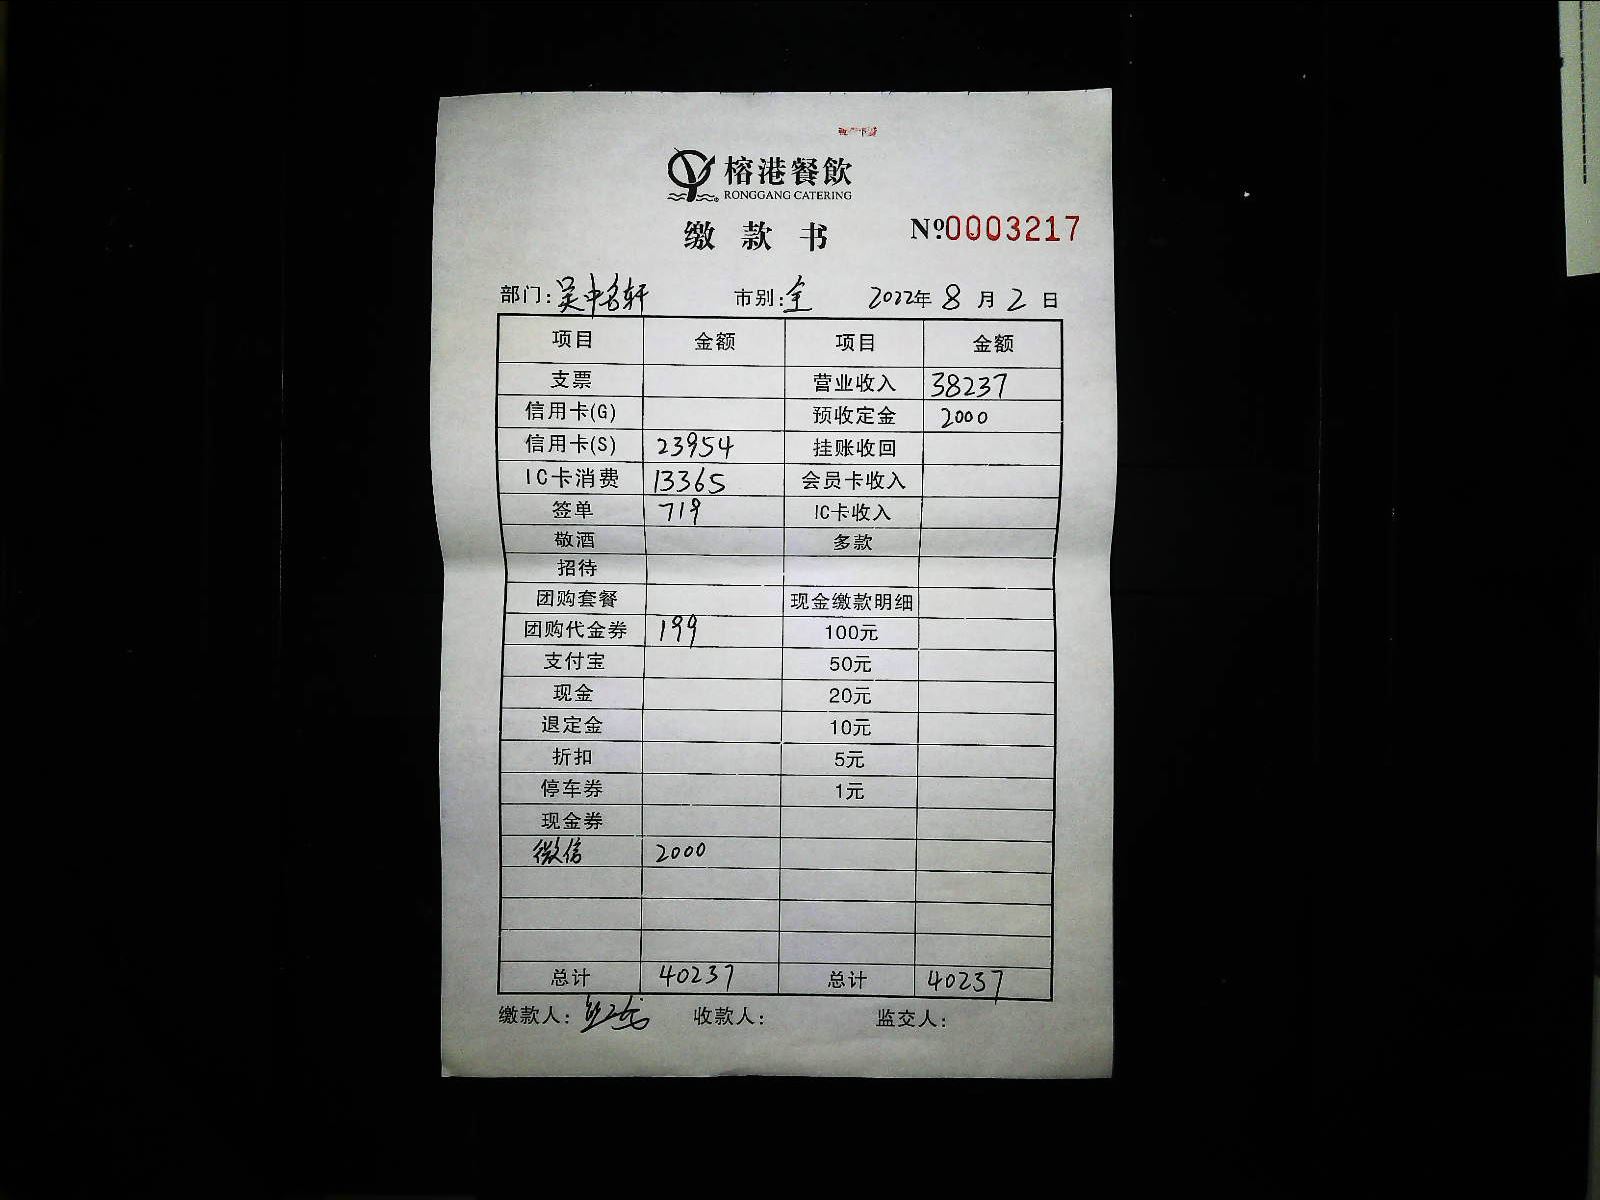 榕港餐飲
RONGGANG CATERING
缴款书 №0003217
部门:吴中名轩 市别:全 2022年8月2日
项目 金额 项目 金额
支票 营业收入 38237
信用卡(G) 预收定金 2000
信用卡(S) 23954 挂账收回
IC卡消费 13365 会员卡收入
签单 719 IC卡收入
敬酒 多款
招待
团购套餐 现金缴款明细
团购代金券 199 100元
支付宝 50元
现金 20元
退定金 10元
折扣 5元
停车券 1元
现金券
微信 2000
总计 40237 总计 40237
缴款人: 收款人: 监交人: